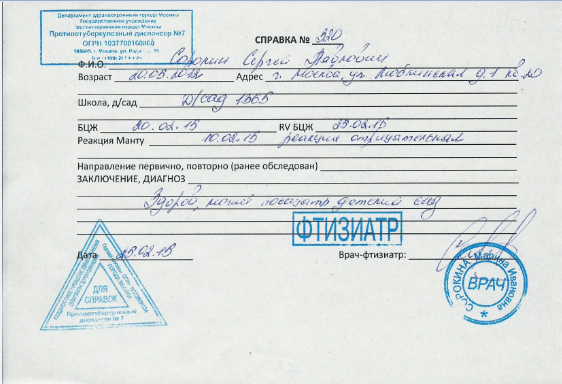 Департамент здравоохранения города Москвы
Государственное учреждение
Противотуберкулезный диспансер №7
ОГРН 1037700160860
СПРАВКА № 390
Ф.И.О. Сорокин Сергей Павлович
Возраст 20.03.2012 Адрес г. Москва, ул. Люблинская д.1
Школа, д/сад д/сад 1565
БЦЖ 20.02.15 RV БЦЖ 23.02.15
Реакция Манту 10.02.15 реакция отрицательная
Направление первично, повторно (ранее обследован)
ЗАКЛЮЧЕНИЕ, ДИАГНОЗ
Здоров, может посещать детский сад
ФТИЗИАТР
Дата 25.02.15 Врач-фтизиатр:
ДЛЯ СПРАВОК
Противотуберкулезный диспансер № 7
СОРОКИНА Марина Ивановна
ВРАЧ